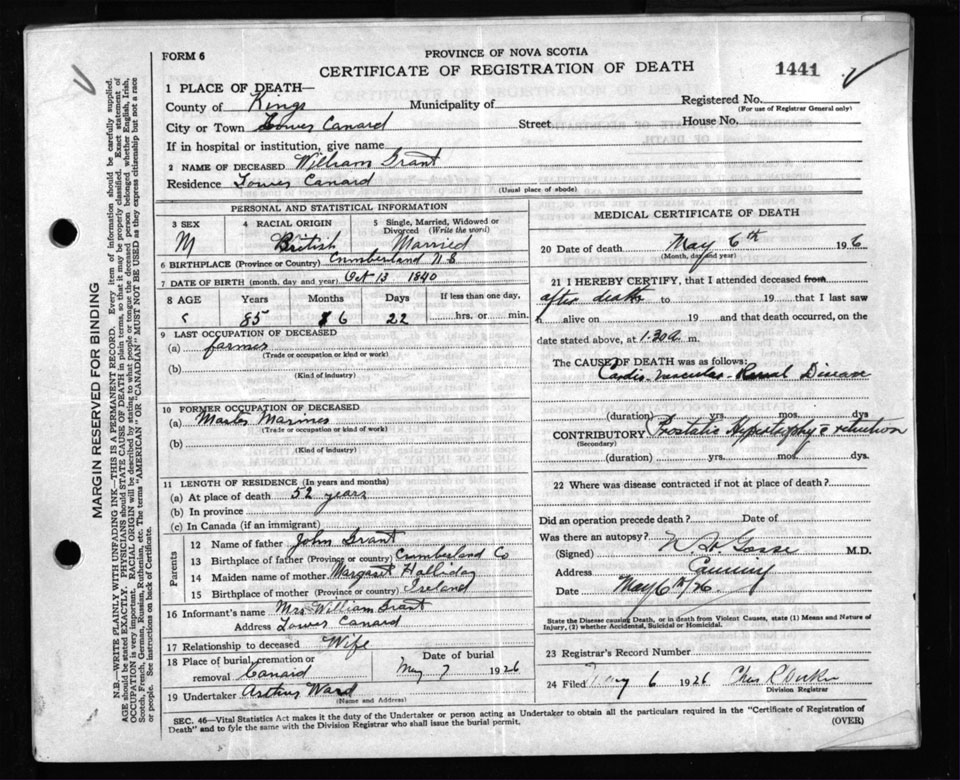 FORM 6
PROVINCE OF NOVA SCOTIA
CERTIFICATE OF REGISTRATION OF DEATH
1441
1 PLACE OF DEATH—
County of Kings Municipality of
Registered No.
(For use of Registrar General only)
City or Town Lower Canard Street House No.
If in hospital or institution, give name
2 NAME OF DECEASED William Grant
Residence Lower Canard
(Usual place of abode)
PERSONAL AND STATISTICAL INFORMATION
3 SEX M
4 RACIAL ORIGIN British
5 Single, Married, Widowed or Divorced (Write the word) Married
6 BIRTHPLACE (Province or Country) Cumberland N S
7 DATE OF BIRTH (month, day and year) Oct 13 1840
8 AGE Years Months Days If less than one day,
85 6 22 hrs. or min.
9 LAST OCCUPATION OF DECEASED
(a) farmer
(Trade or occupation or kind or work)
(b)
(Kind of industry)
10 FORMER OCCUPATION OF DECEASED
(a) Master Mariner
(Trade or occupation or kind or work)
(b)
(Kind of industry)
11 LENGTH OF RESIDENCE (In years and months)
(a) At place of death 52 years
(b) In province
(c) In Canada (if an immigrant)
Parents
12 Name of father John Grant
13 Birthplace of father (Province or country) Cumberland Co
14 Maiden name of mother Margaret Halliday
15 Birthplace of mother (Province or country) Ireland
16 Informant's name Mrs William Grant
Address Lower Canard
17 Relationship to deceased Wife
18 Place of burial, cremation or removal Canard
Date of burial May 7 1926
19 Undertaker Arthur Ward
(Name and Address)
MEDICAL CERTIFICATE OF DEATH
20 Date of death May 6th 1926
(Month, day and year)
21 I HEREBY CERTIFY, that I attended deceased from
after death to 19 that I last saw
h alive on 19 and that death occurred, on
date stated above, at 1.30 a m.
The CAUSE OF DEATH was as follows:
Cardio-Vascular-Renal Disease
(duration) yrs. mos. dys
CONTRIBUTORY Prostatic Hypertrophy retention
(Secondary)
(duration) yrs. mos. dys.
22 Where was disease contracted if not at place of death?
Did an operation precede death? Date of
Was there an autopsy?
(Signed) Gosse M.D.
Address Canning
Date May 6th/26
State the Disease causing Death, or in death from Violent Causes, state (1) Means and Nature of Injury, (2) whether Accidental, Suicidal or Homicidal.
23 Registrar's Record Number
24 Filed May 6 1926 Chas
Division Registrar
SEC. 46—Vital Statistics Act makes it the duty of the Undertaker or person acting as Undertaker to obtain all the particulars required in the "Certificate of Registration of
Death" and to fyle the same with the Division Registrar who shall issue the burial permit.
(OVER)
MARGIN RESERVED FOR BINDING
N.B.—WRITE PLAINLY WITH UNFADING INK—THIS IS A PERMANENT RECORD. Every item of information should be carefully supplied.
AGE should be stated EXACTLY. PHYSICIANS should STATE CAUSE OF DEATH in plain terms, so that it may be properly classified. Exact statement of
OCCUPATION is very important. RACIAL ORIGIN will be described by stating to what people or tongue the deceased person belonged whether English, Irish,
Scotch, French, German, Russian, Ruthenian, etc. The terms "AMERICAN" OR "CANADIAN" MUST NOT BE USED as they express citizenship but not a race
or people. See instructions on back of Certificate.